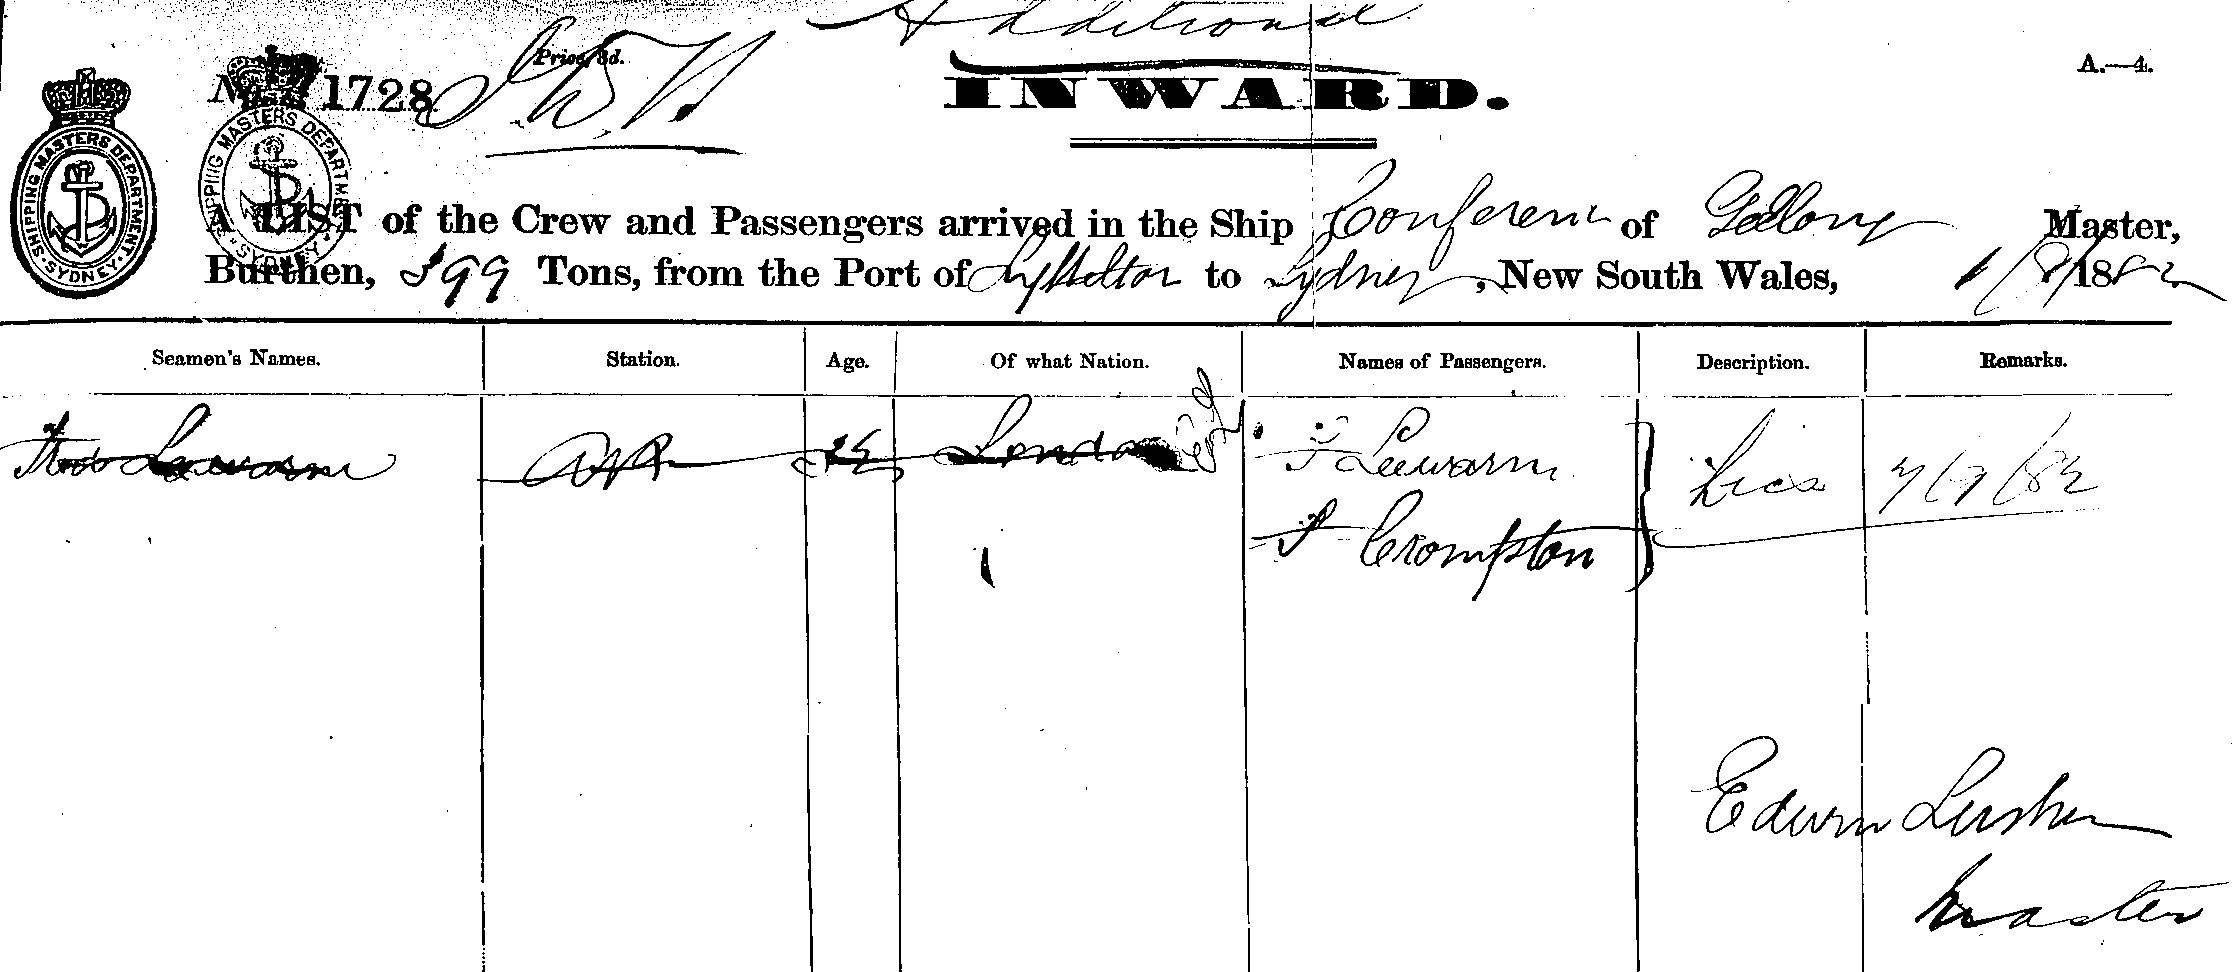 Additional
Price, 3d.
No. 1728
INWARD.
A.—4.
SHIPPING MASTERS DEPARTMENT
SYDNEY
SHIPPING MASTERS DEPARTMENT
SYDNEY
A LIST of the Crew and Passengers arrived in the Ship Conference of Geelong Master,
Burthen, 399 Tons, from the Port of Lyttelton to Sydney, New South Wales, 1/8/1882
Seamen's Names. Station. Age. Of what Nation. Names of Passengers. Description. Remarks.
Thos Luwarm AB London F Luwarm
Lics 7/9/82
F Crompton
Edwin Lusher
Master